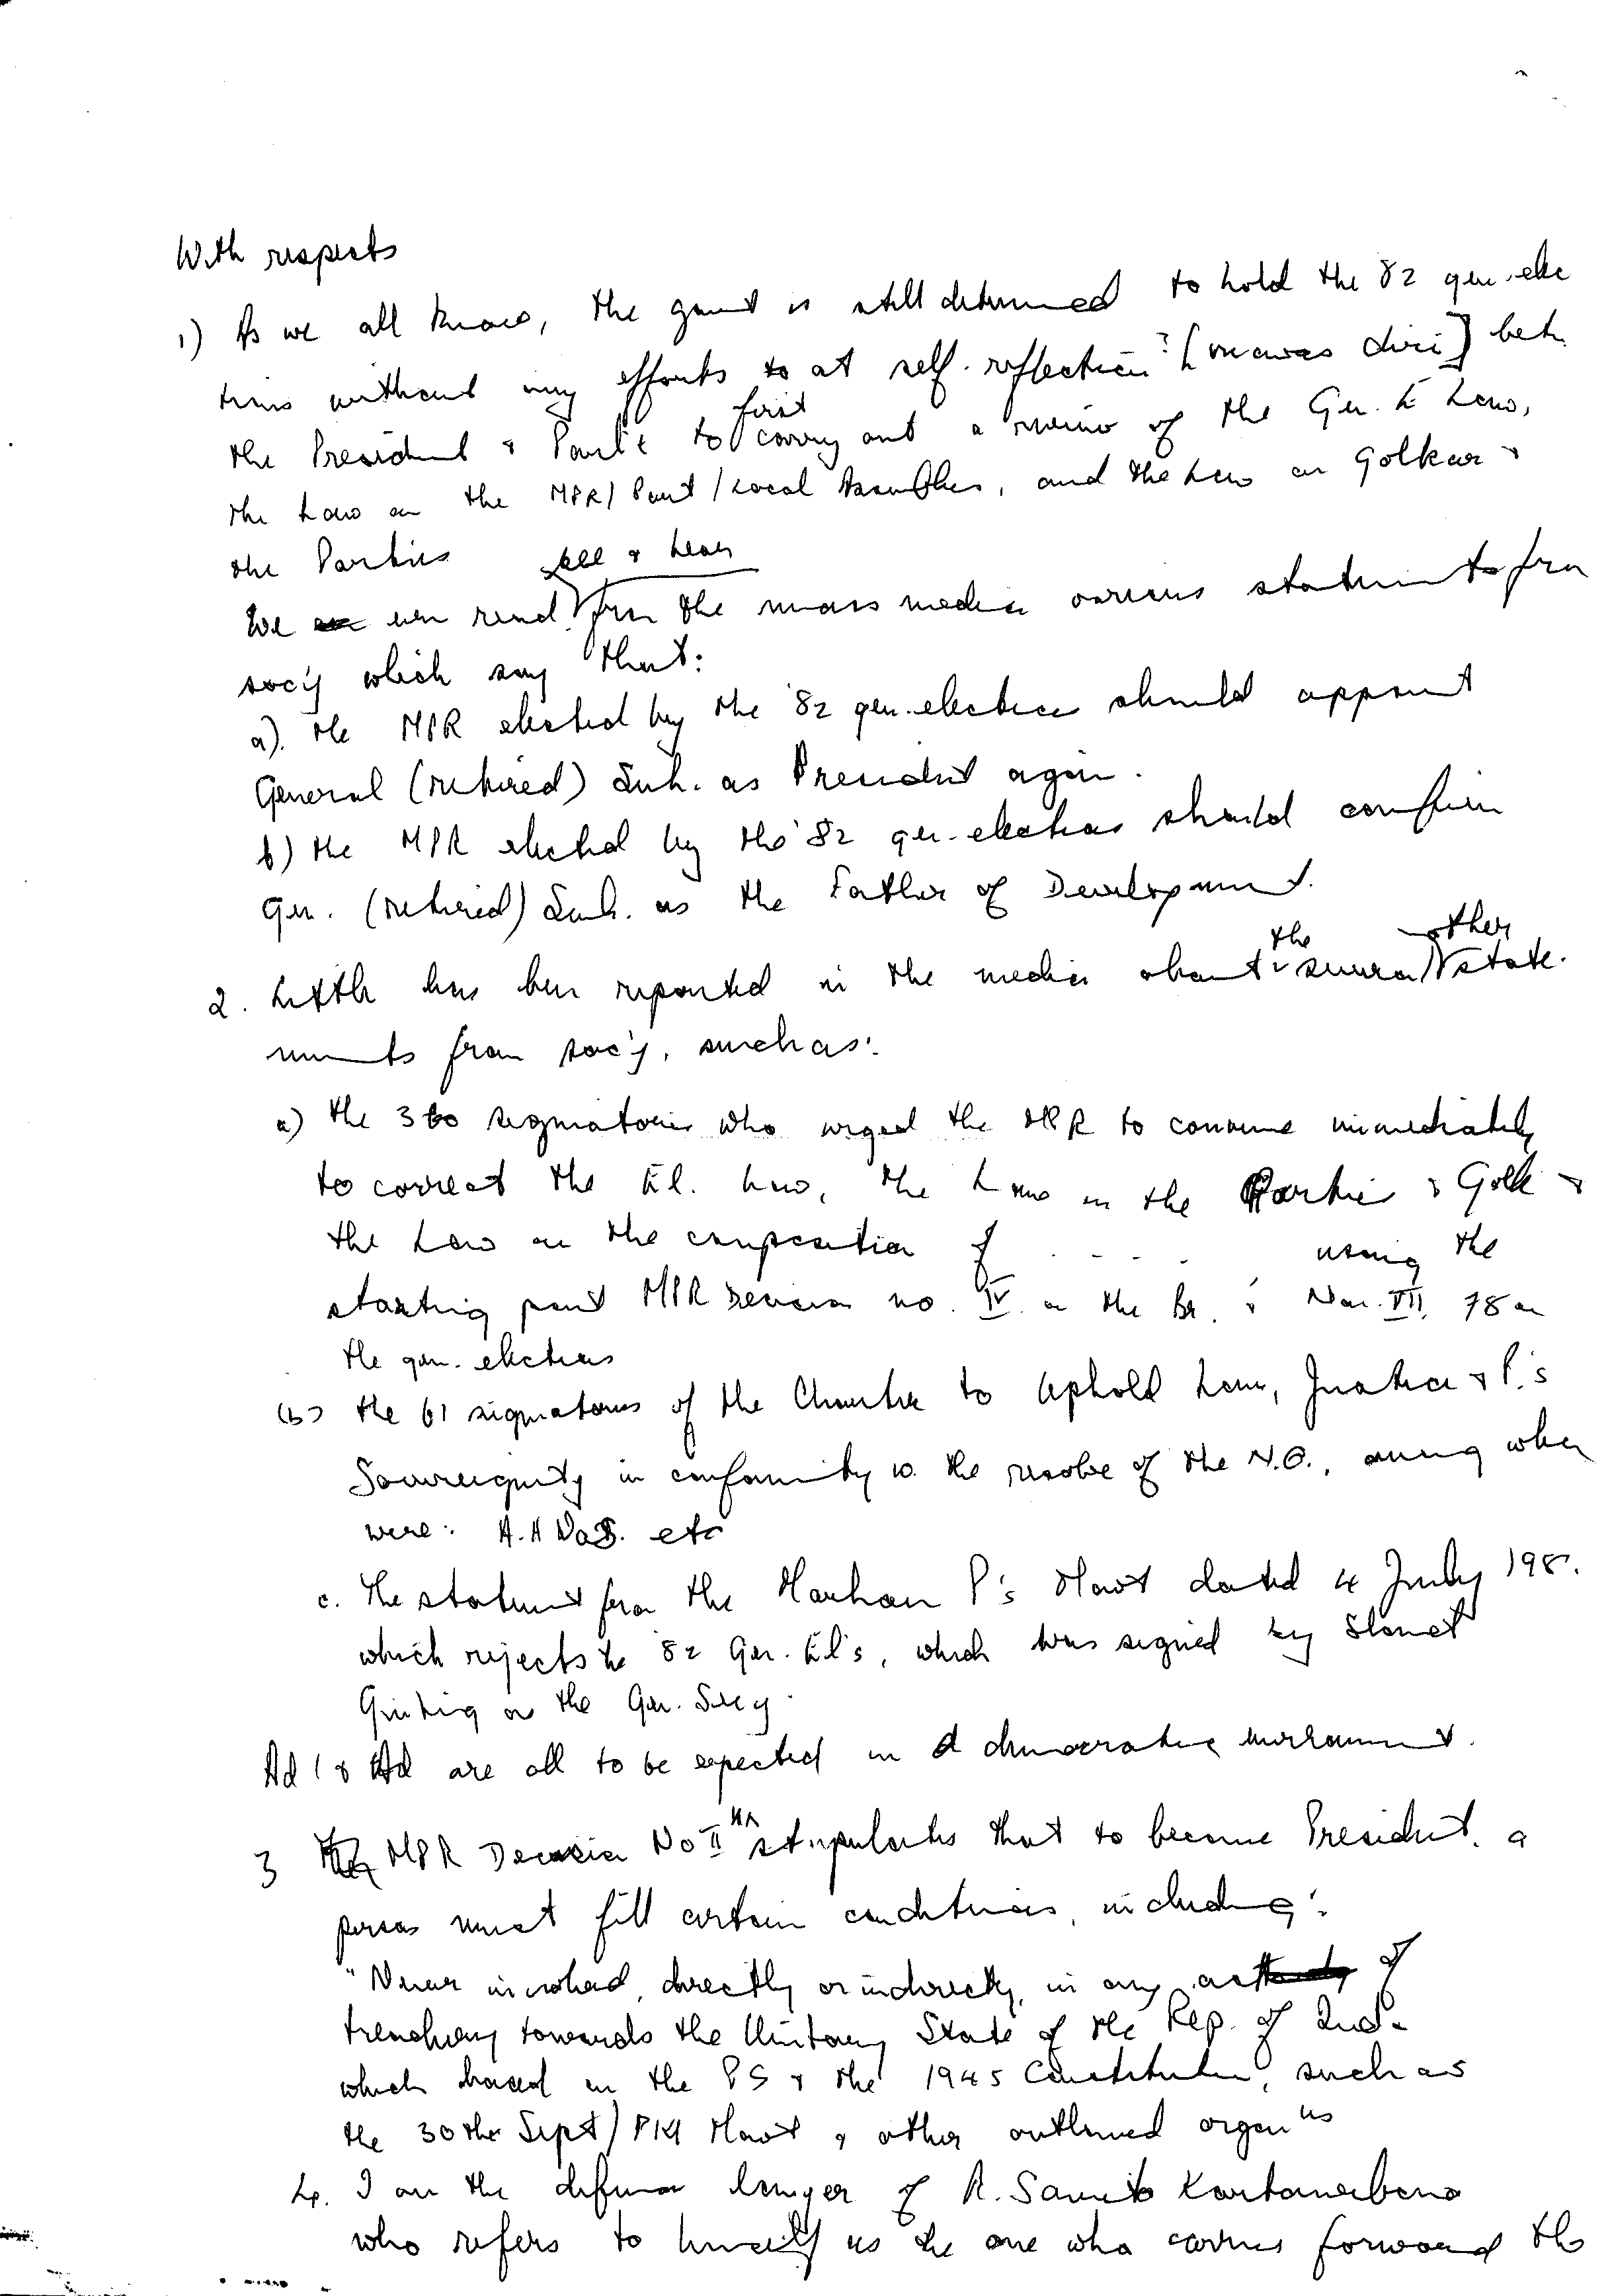 With respects
1) As we all know, the govnt is still determined to hold the 82 gen. elec
tions without any efforts to at self-reflection? [mawas diri] bet.
the President & Parlt to first carry out a review of the Gen. E Law,
the Law on the MPR/Parlt/Local Assemblies, and the Law on Golkar &
the Parties
We can read, see & hear from the mass media various statements from
soc'y which say that:
a). the MPR elected by the '82 gen. elections should appoint
General (retired) Suh. as President again.
b) the MPR elected by the '82 gen. elections should confirm
Gen. (retired) Suh. as the Father of Development.
2. Little has been reported in the media about the several other state-
ments from soc'y, such as:
a) the 360 signatories who urged the MPR to convene immediately
to correct the El. Law, the Law on the Parties & Golk &
the Law on the composition of - - - - using the
starting point MPR Decision no. IV on the & No. VII, 78 on
the gen. elections
(b) the 61 signatories of the Charter to Uphold Law, Justice & P.'s
Sovereignty in conformity w. the resolve of the N.O., among whom
were: A.H Nas. etc
c. The statement from the Marhaen P's Mov't dated 4 July 198.
which rejects the '82 Gen. El's, which was signed by Slamet
Ginting as the Gen. Secy.
Ad 1 & Ad are all to be expected in a democratic environment.
3 MPR Decision No II stipulates that to become President, a
person must fill certain conditions, including:
"Never involved, directly or indirectly, in any act of
treachery towards the Unitary State of the Rep. of Ind.
which based on the PS & the 1945 Constitution, such as
the 30th Sept/PKI Mov't & other outlawed organ'ns
4. I am the defence lawyer of R. Sawito Kartowibowo
who refers to himself as the one who carries forward the